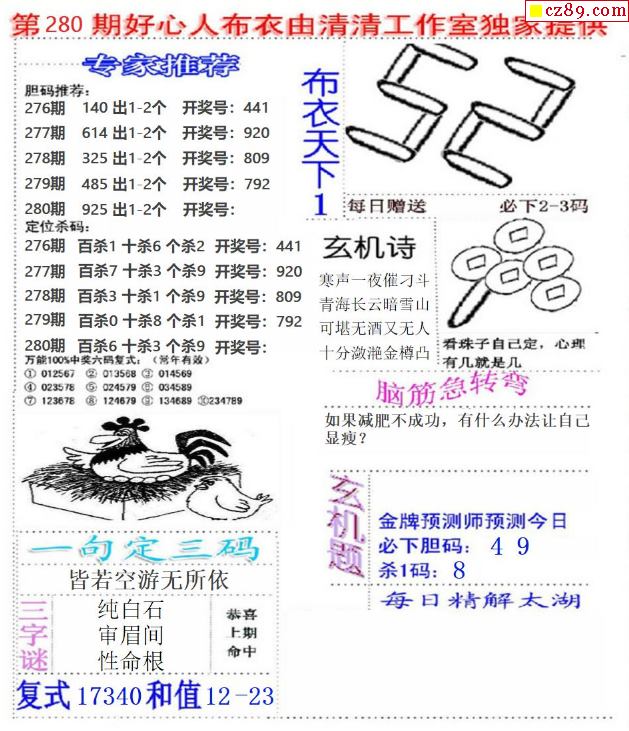 cz89.com
第280期好心人布衣由清清工作室独家提供
专家推荐
胆码推荐：
276期 140 出1-2个 开奖号：441
277期 614 出1-2个 开奖号：920
278期 325 出1-2个 开奖号：809
279期 485 出1-2个 开奖号：792
280期 925 出1-2个 开奖号：
定位杀码：
276期 百杀1 十杀6 个杀2 开奖号：441
277期 百杀7 十杀3 个杀9 开奖号：920
278期 百杀3 十杀1 个杀9 开奖号：809
279期 百杀0 十杀8 个杀1 开奖号：792
280期 百杀6 十杀3 个杀9 开奖号：
万能100%中奖六码复式：（常年有效）
① 012567 ② 013568 ③ 014569
④ 023578 ⑤ 024579 ⑥ 034589
⑦ 123678 ⑧ 124679 ⑨ 134689 ⑩234789
布衣天下1
52
每日赠送 必下2-3码
玄机诗
寒声一夜催刁斗
青海长云暗雪山
可堪无酒又无人
十分潋滟金樽凸
看珠子自己定，心理
有几就是几
脑筋急转弯
如果减肥不成功，有什么办法让自己
显瘦？
一句定三码
皆若空游无所依
三字谜
纯白石
审眉间
性命根
恭喜
上期
命中
复式17340和值12-23
玄机题
金牌预测师预测今日
必下胆码： 4 9
杀1码： 8
每日精解太湖